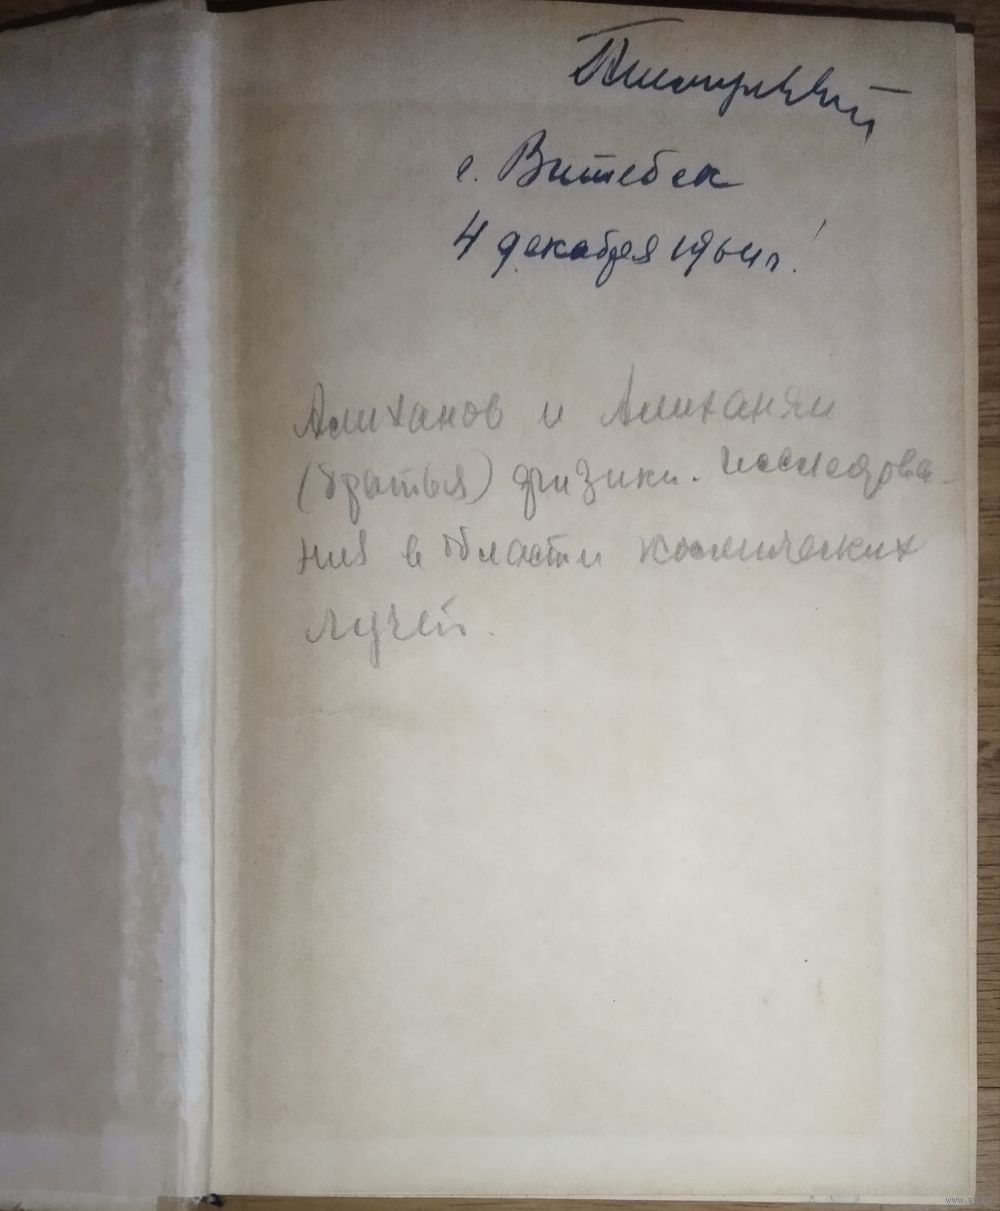 г. Витебск
4 декабря 1964 г.
Алиханов и Алиханян
(братья) физики. Исследова-
ния в области космических
лучей.